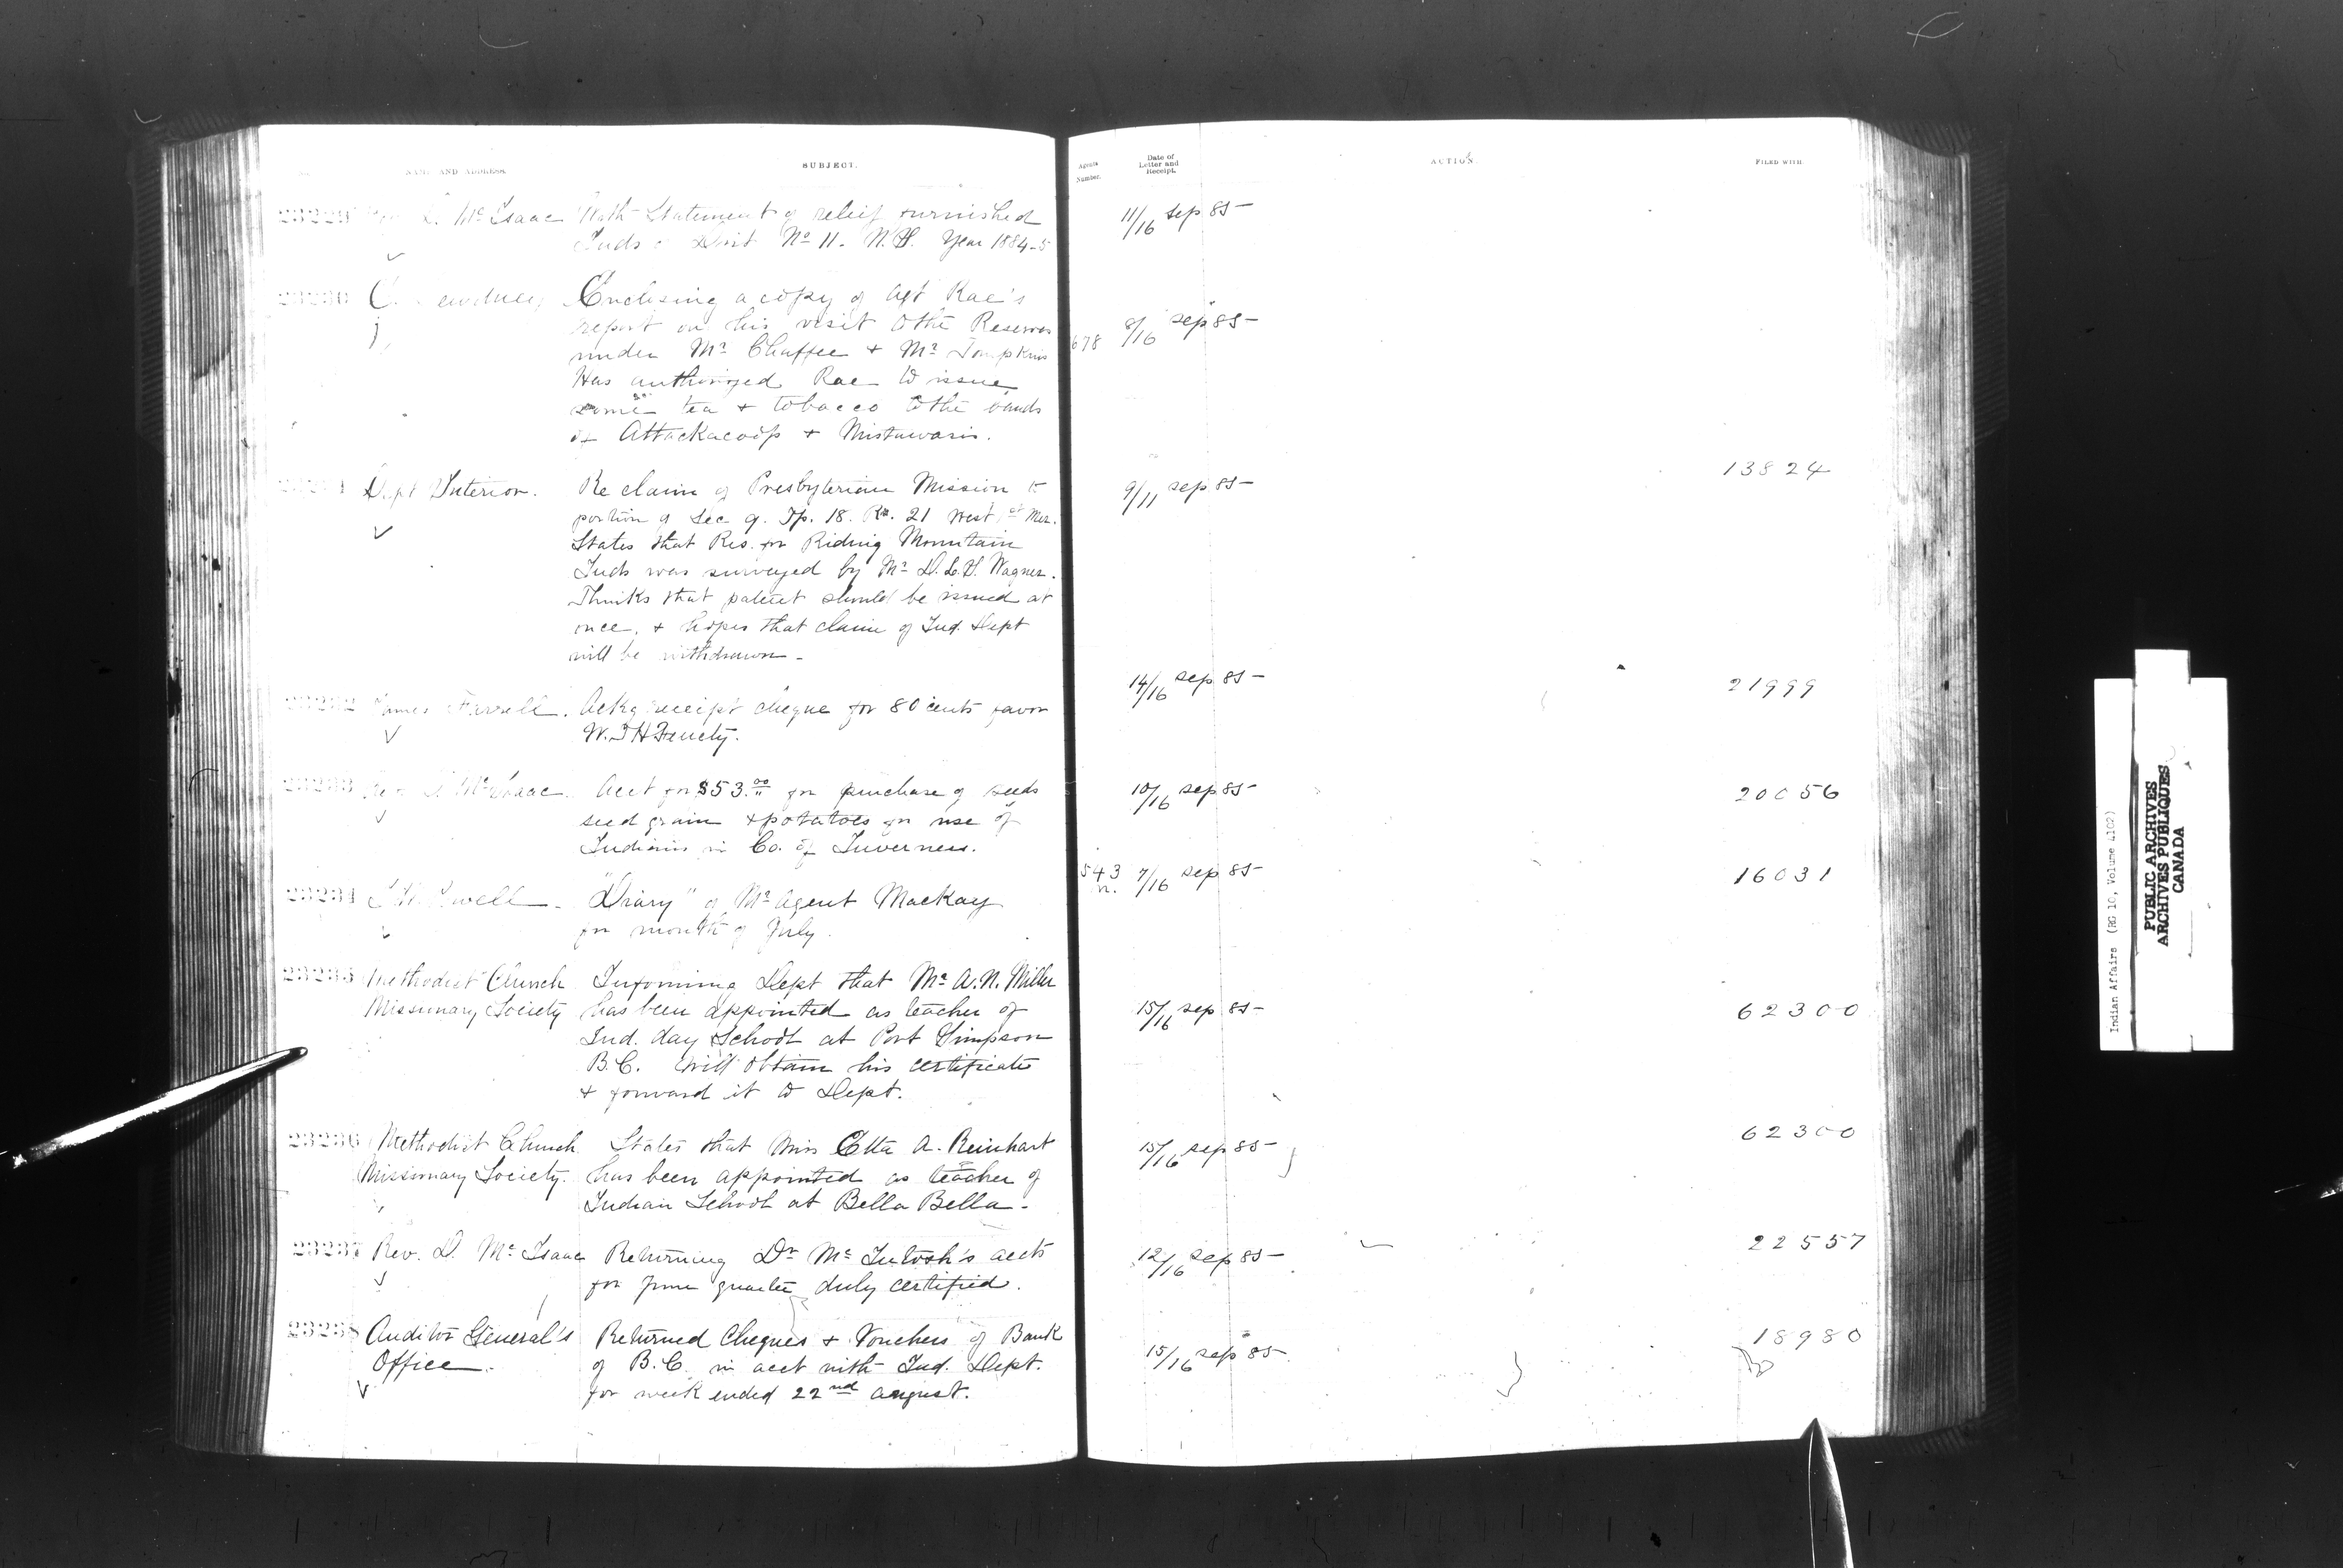 NAME AND ADDRESS. SUBJECT. Agents Number. Date of Letter and Receipt. ACTION. FILED WITH.
23229 McIsaac With Statement of relief furnished 11/16 sep 85
Inds Dist No 11. N.S. Year 1884-5
23230 Enclosing a copy of Agt Rae's
report on his visit to the Reserves 678 8/16 sep 85
under Mr Chaffee + Mr Tompkins
Has authorized Rae to issue
some tea + tobacco to the bands
of Attackacoop + Mistawasis.
Dept Interior. Re claim of Presbyterian Mission to 9/11 sep 85 13824
portion of Sec 9. Tp. 18. Rg. 21 West 1st Mer.
States that Res. for Riding Mountain
Inds was surveyed by Mr D.L.S. Wagner.
Thinks that patent should be issued at
once, + hopes that claim of Ind. Dept
will be withdrawn -
23232 James Farrell. Ackg receipt cheque for 80 cents favor 14/16 sep 85 21999
W.T.H Fenety.
23233 McIsaac Acct for $53.00 for purchase of seeds 10/16 sep 85 20056
seed grain + potatoes for use of
Indians in Co. of Inverness.
23234 "Diary" of Mr Agent Mackay 543 7/16 sep 85 16031
for month of July.
23235 Methodist Church Informing Dept that Mr A.N. Miller
Missionary Society has been appointed as teacher of 15/16 sep 85 62300
Ind. day School at Port Simpson
B.C. Will obtain his certificate
+ forward it to Dept.
23236 Methodist Church States that Miss Etta A. Reinhart 15/16 sep 85 62300
Missionary Society. has been appointed as teacher of
Indian School at Bella Bella -
23237 Rev. D. McIsaac Returning Dr McIntosh's accts 12/16 sep 85 22557
for June quarter duly certified.
23238 Auditor General's Returned Cheques + Vouchers of Bank 15/16 sep 85 18980
Office. of B.C. in acct with Ind. Dept.
for week ended 22nd August.
Indian Affairs (RG 10, Volume 4102)
PUBLIC ARCHIVES
ARCHIVES PUBLIQUES
CANADA